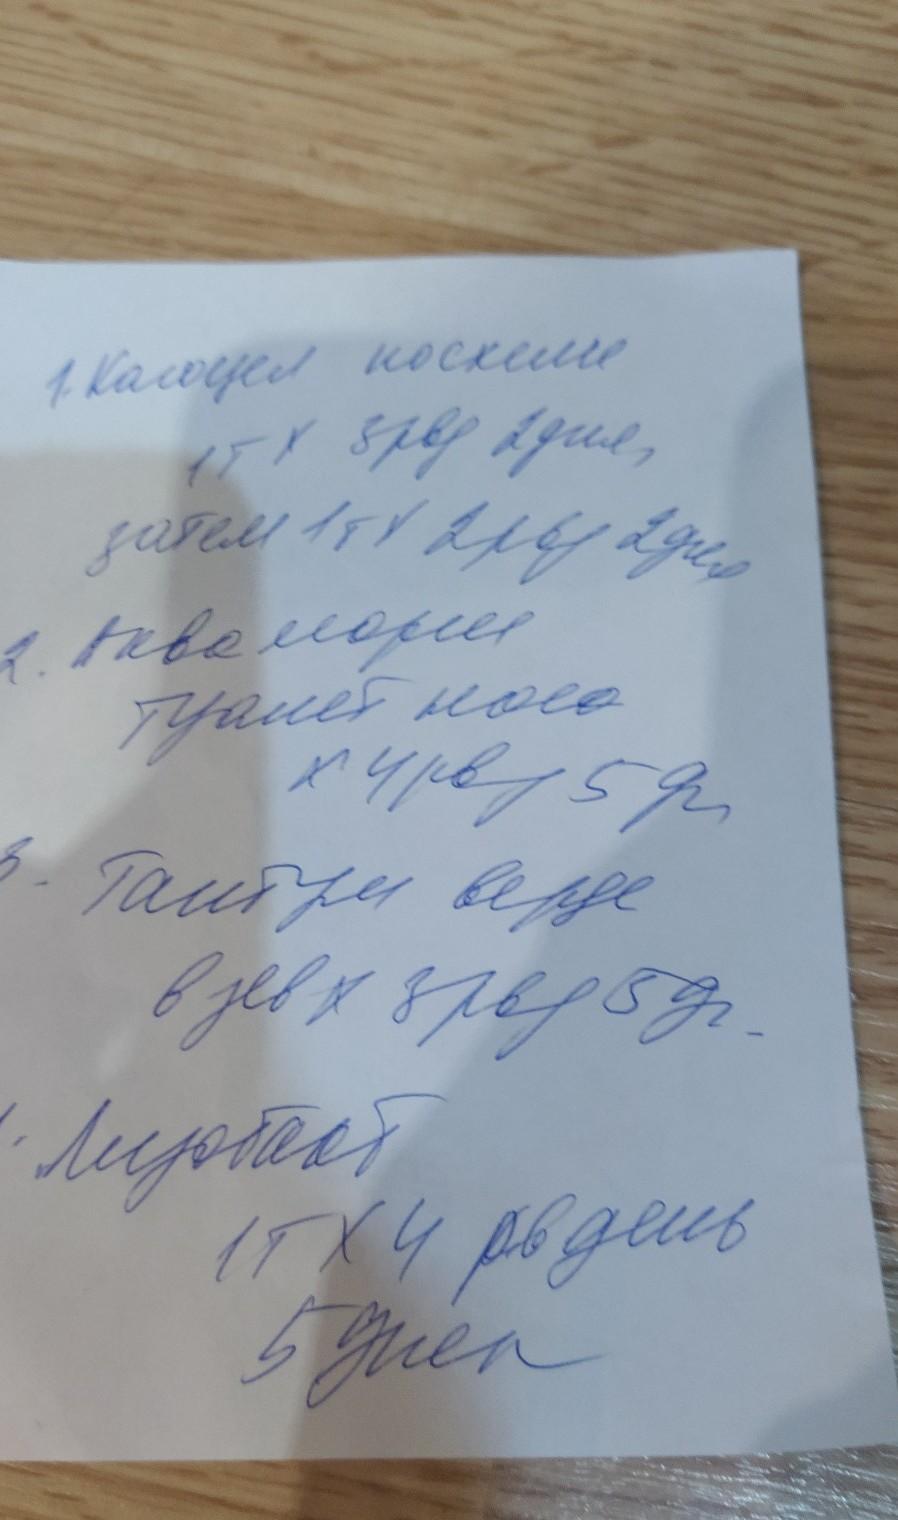 1. Кагоцел по схеме
1т х 3 рвд 2 дня,
затем 1т х 2 рвд 2 дня
2. Аквамарис
туалет носа
х 4 рвд 5 д.
3. Тантум верде
в зев х 3 рвд 5 д.
Лизобакт
1т х 4 р в день
5 дней